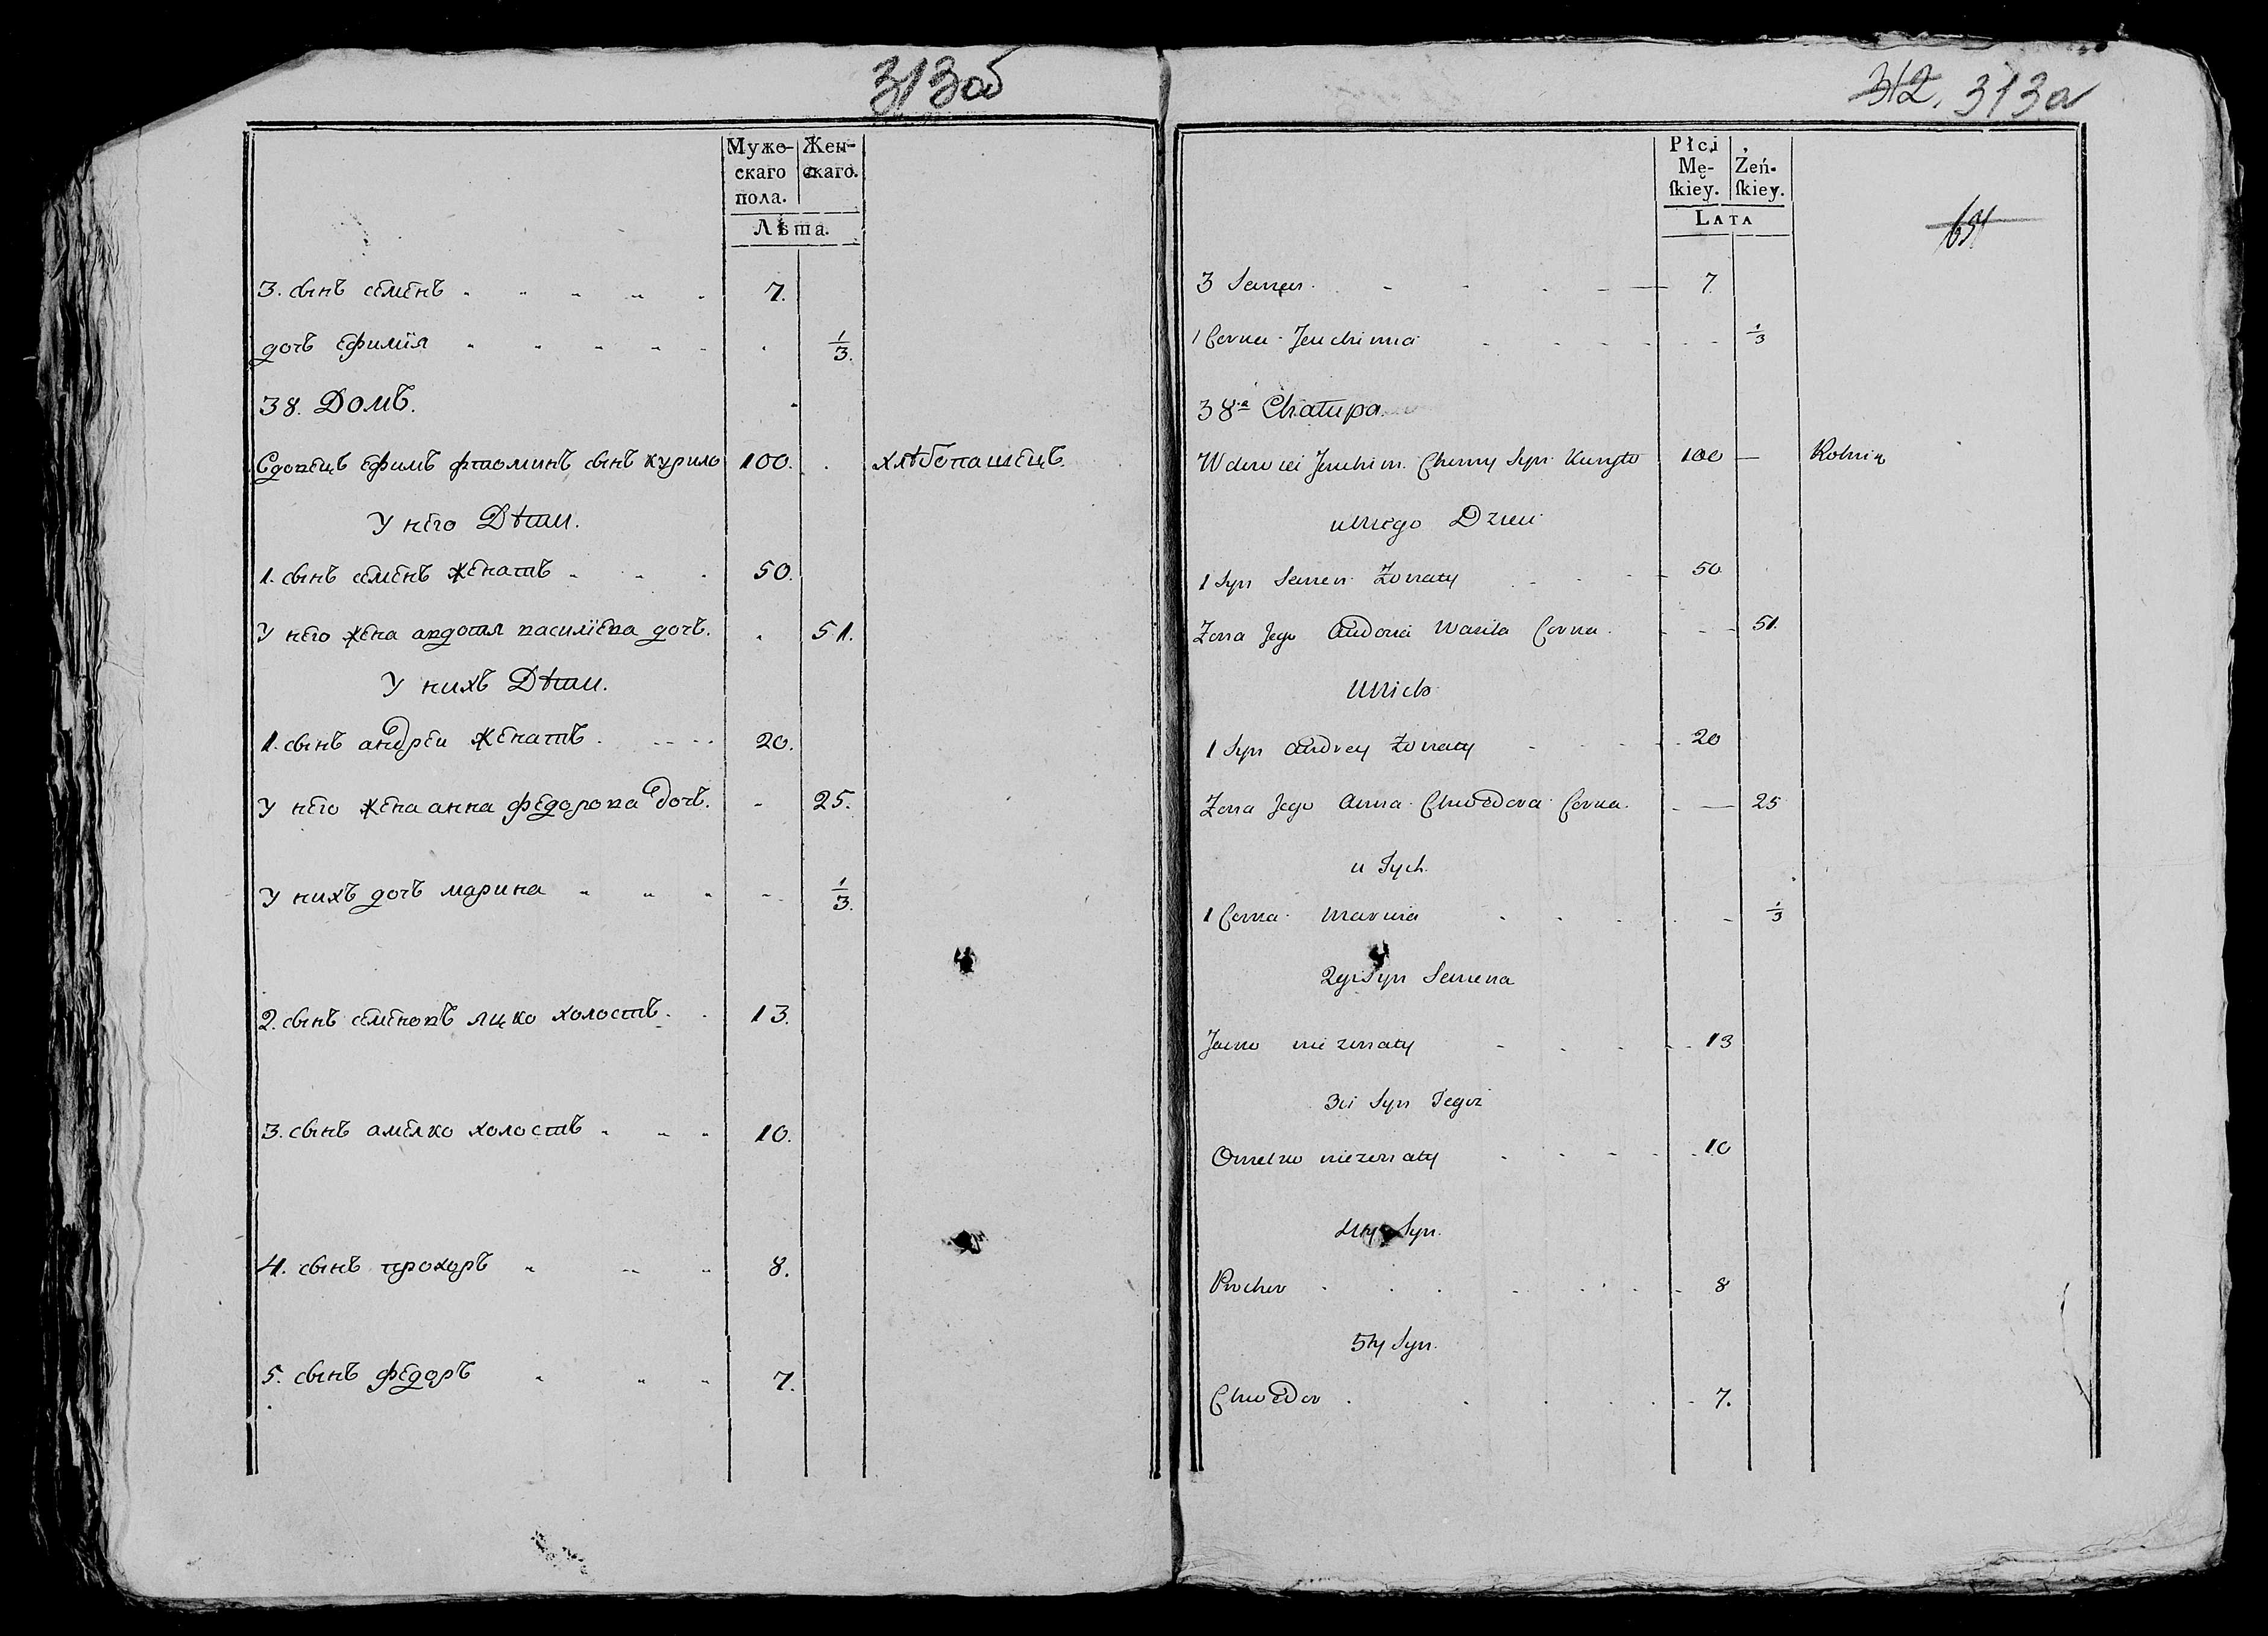 313об
Мужс- Жен-
скаго скаго.
пола.
Лѣта.
3. сынъ семенъ 7.
дочь ефимія 1/3.
38. Домъ.
вдовецъ ефимъ фтоминъ сынъ курило 100. хлѣбопашецъ
У него Дѣти.
1. сынъ семенъ женатъ 50.
У него жена авдотя василіева дочь. 51.
У нихъ Дѣти.
1. сынъ андреи женатъ 20.
У него жена анна федорова дочь. 25.
У нихъ дочь марина 1/3.
2. сынъ семеновъ яцко холостъ. 13.
3. сынъ амелко холостъ 10.
4. сынъ прохоръ 8.
5. сынъ федоръ 7.
312, 313а
Płci
Mę- Żeń-
ſkiey. ſkiey.
LATA
3 Semen 7.
1 Corka Jeuchimia 1/3
38a Chałupa.
Wdowiec Jeuchim Chomy Syn Kuryło 100 Rolnik
u Niego Dzieci
1 Syn Semen Żonaty 50
Żona Jego Audocia Wasila Corka 51.
u Nich
1 Syn Andrey Żonaty 20
Żona Jego Anna Chwedora Corka 25
u Tych
1 Corka Marina 1/3
2gi Syn Semena
Jacko nieżonaty 13
3ci Syn Tegoż
Omelko nieżonaty 10
4ty Syn
Prochor 8
5ty Syn
Chwedor 7.